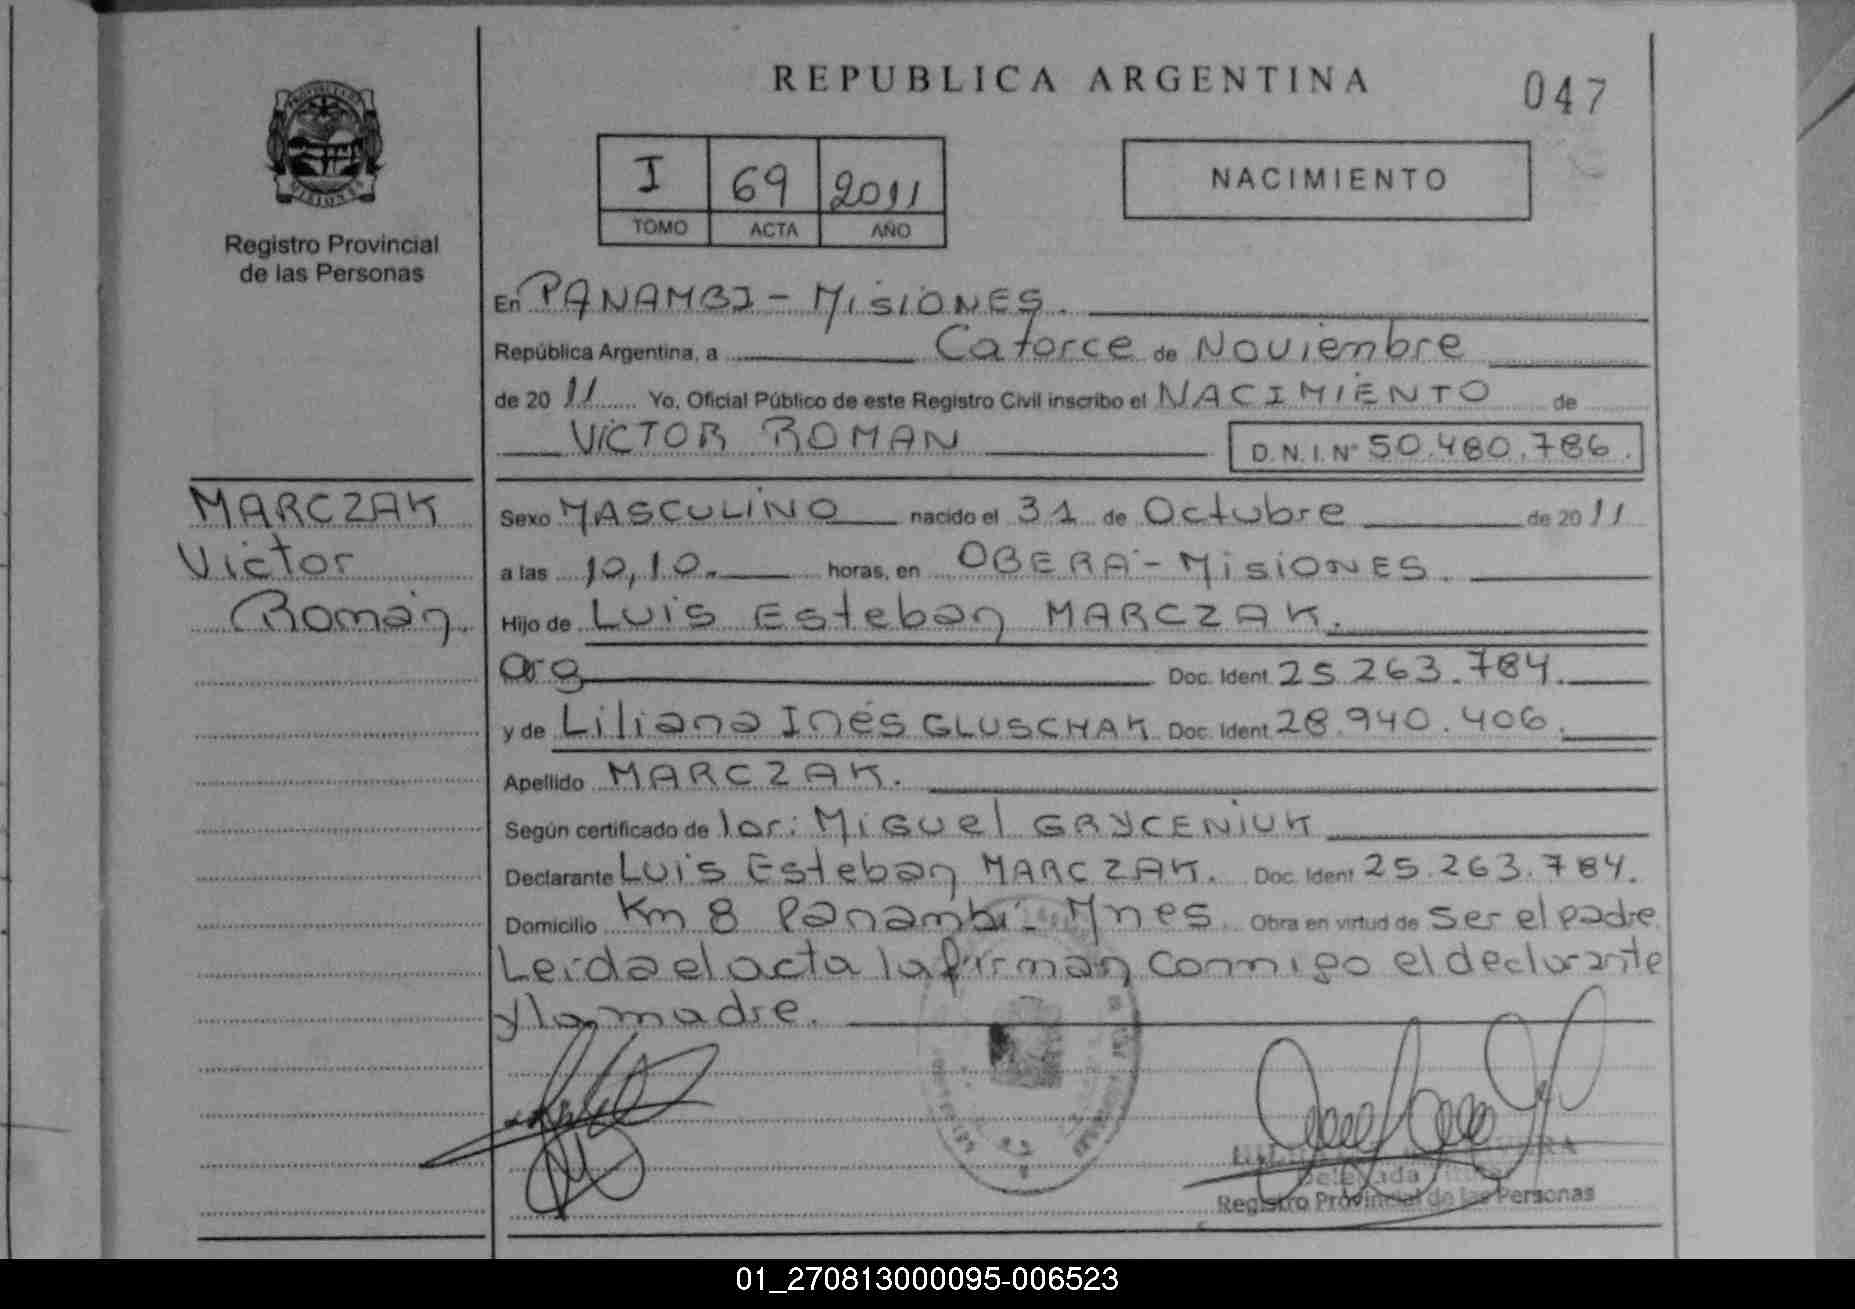 REPUBLICA ARGENTINA
047
PROVINCIA DE
MISIONES
Registro Provincial
de las Personas
I 69 2011
TOMO ACTA AÑO
NACIMIENTO
En PANAMBI - MISIONES.
República Argentina, a Catorce de Noviembre
de 20 11 Yo, Oficial Público de este Registro Civil inscribo el NACIMIENTO de
VICTOR ROMAN D.N.I. Nº 50.480.786.
MARCZAK
Victor
Román.
Sexo MASCULINO nacido el 31 de Octubre de 20 11
a las 10,10. horas, en OBERÁ - MISIONES.
Hijo de Luis Esteban MARCZAK.
arg Doc. Ident 25.263.784.
y de Liliana Inés GLUSCHAK Doc. Ident 28.940.406.
Apellido MARCZAK.
Según certificado de Miguel GRYCENIUK
Declarante Luis Esteban MARCZAK. Doc. Ident 25.263.784.
Domicilio Km 8 Panambi - Mnes. Obra en virtud de ser el padre.
Leida el acta la firman conmigo el declarante
y la madre.
Delegada
Registro Provincial de las Personas
01_270813000095-006523